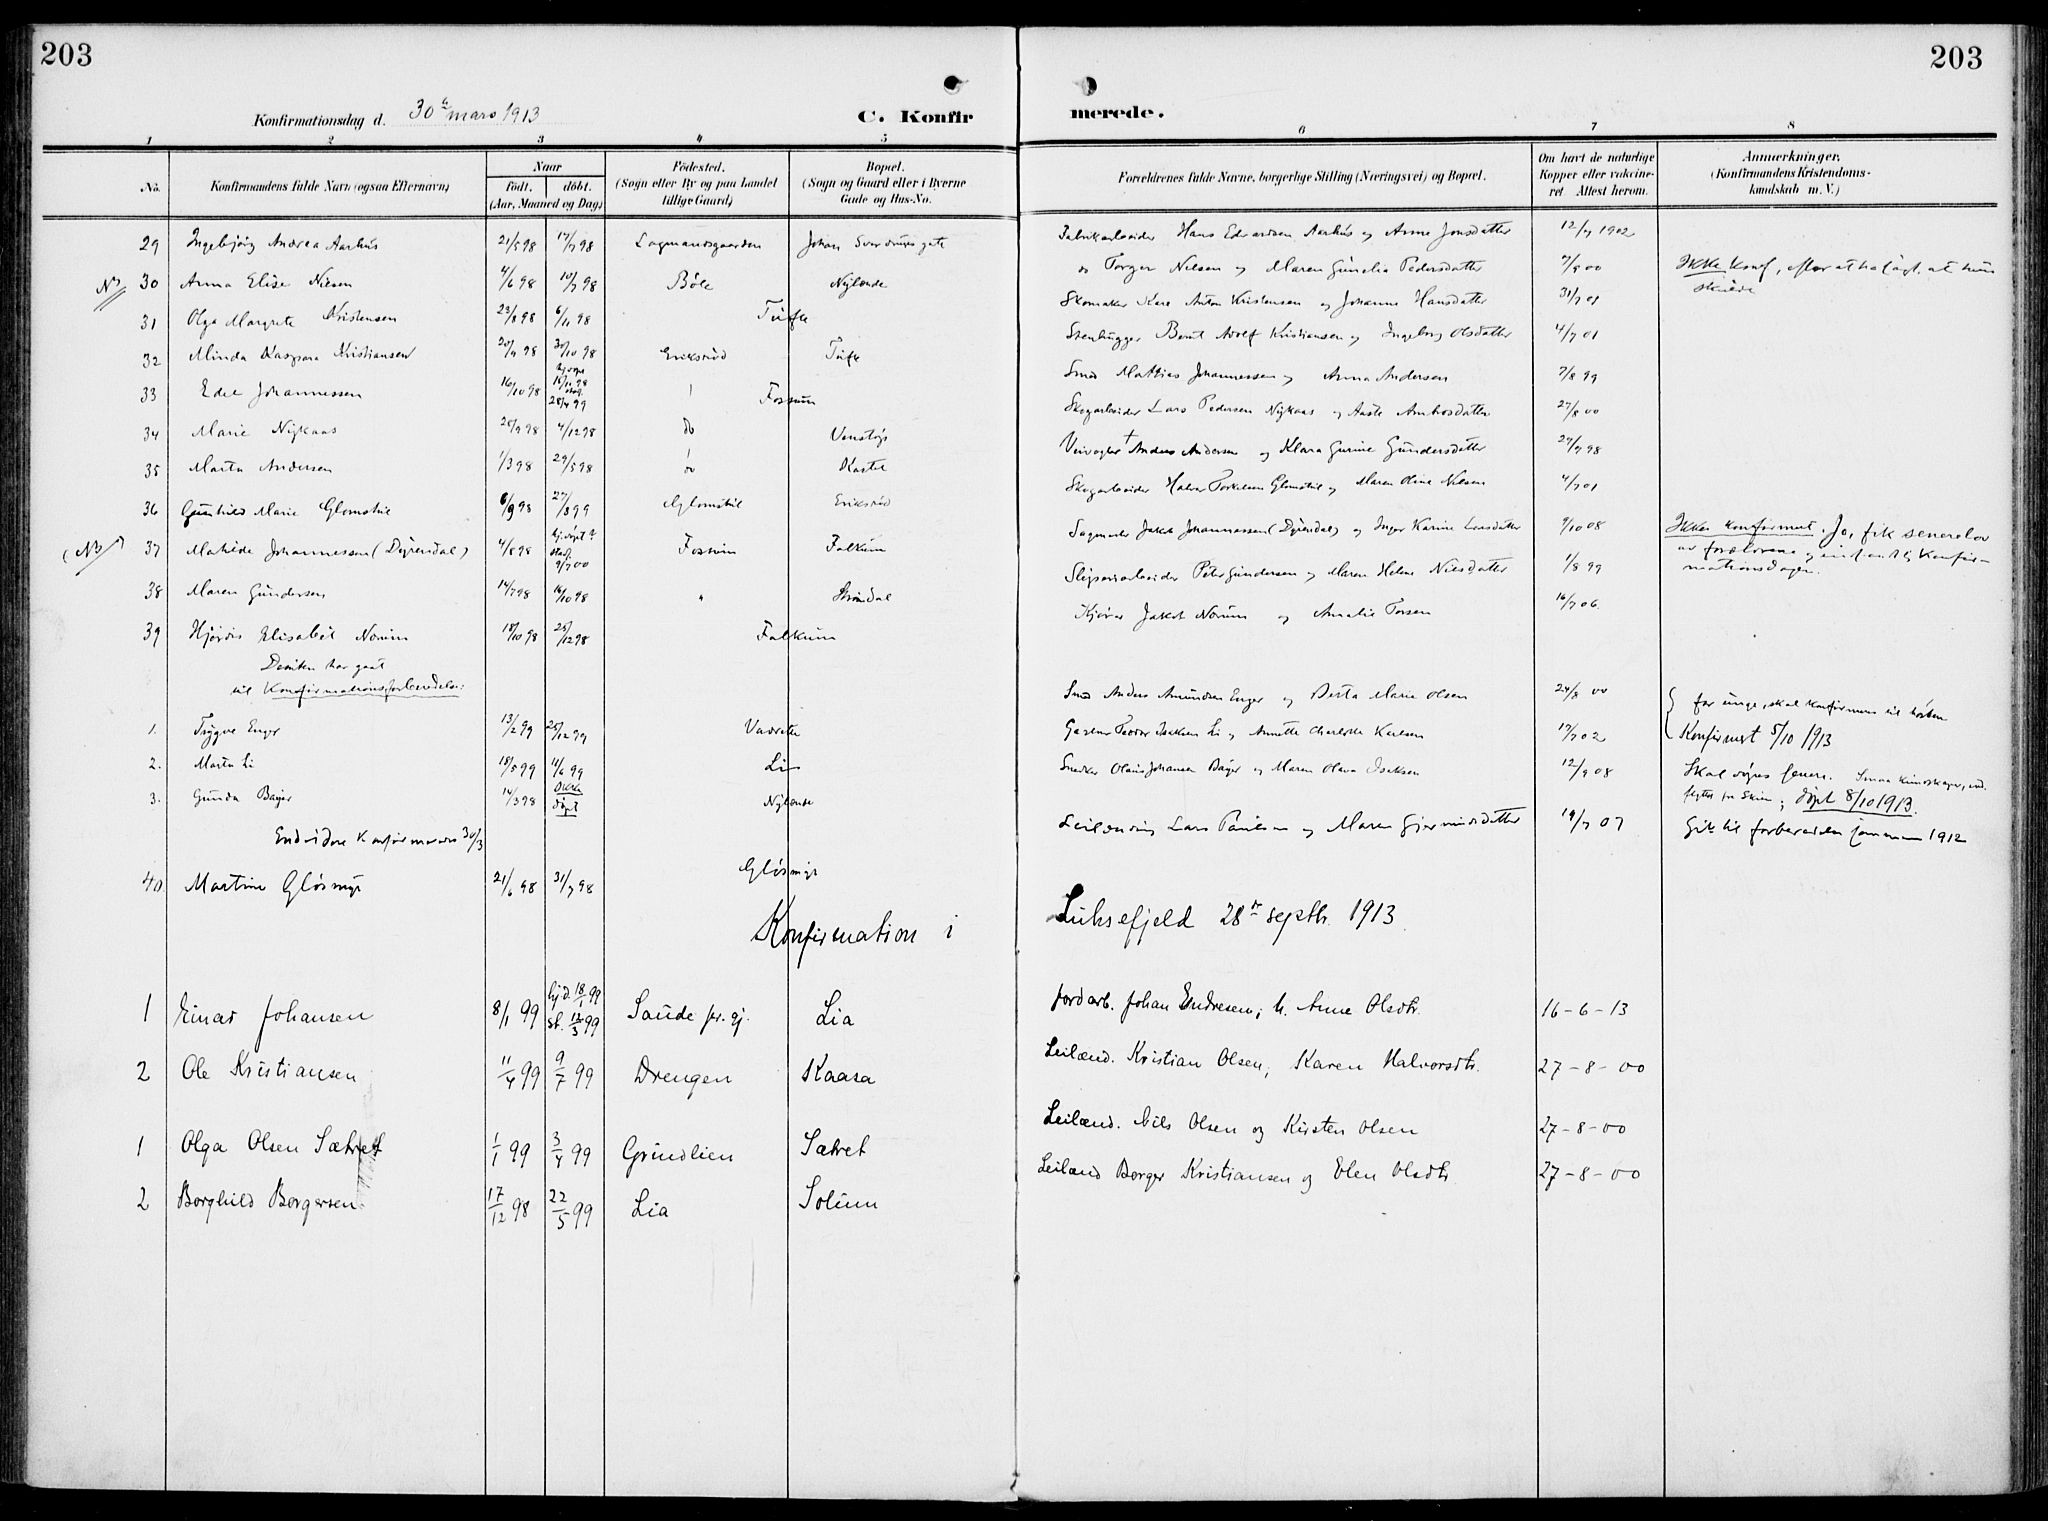 203
203
Konfirmationsdag d. 30te mars 1913
C. Konfir
merede.
1 2 3 4 5 6 7 8
No. Konfirmandens fulde Navn (ogsaa Efternavn) Naar Födested. Bopæl. Forældrenes fulde Navne, borgerlige Stilling (Næringsvei) og Bopæl. Om havt de naturlige Anmærkninger,
födt. döbt. (Sogn eller By og paa Landet (Sogn og Gaard eller i Byerne Kopper eller vakcine- (Konfirmandens Kristendoms-
(Aar, Maaned og Dag) tillige Gaard) Gade og Hus-No. ret Attest herom. kundskab m. V.)
29 Ingebjörg Andrea Aarhus 21/5 98 17/7 98 Lagmandsgaarden Johan Sverdrups gate Fabrikarbeider Hans Edvardsen Aarhus og Anne Jonsdatter 12/7 1902
NB 30 Anna Elise Nilsen 4/6 98 10/7 98 Böle Nylende Torger Nilsen og Maren Gunelia Pedersdatter 7/9 00 Ikke konf, efter at ha sagt, at hun skulde
31 Olga Margrete Kristensen 23/8 98 6/11 98 Tufte Skomaker Kare Anton Kristensen og Johanne Hansdatter 31/7 01
32 Minda Kaspara Kristiansen 20/9 98 30/10 98 Eriksröd Tufte Stenhugger Bernt Adolf Kristiansen og Ingeborg Olsdatter 4/7 01
33 Edel Johannessen 16/10 98 28/4 99 Fossum Smed Mathias Johannessen og Anna Andersen 7/8 99
34 Marie Nykaas 28/9 98 4/12 98 do Venstöp Skogarbeider Lars Pedersen Nykaas og Aaste Ambrosdatter 27/8 00
35 Marta Andersen 1/3 98 29/5 98 do Kastet Veivogter † Anders Andersen og Klara Gurine Gundersdatter 27/7 98
36 Gunhild Marie Glomstul 6/9 98 27/8 99 Glomstul Eriksröd Skogarbeider Halvor Torkelsen Glomstul og Maren Oline Nilsen 4/7 01
(NB) 37 Matilde Johannessen (Dyrendal) 4/8 98 hj. döpt ? stad. 9/7 00 Fossum Falkum Sagmester Jakob Johannessen (Dyrendal) og Inger Karine Larsdatter 9/10 08 Ikke konfirmert. Jo, fik senere lov
av forældrene og indfant sig Konfir-
mationsdagen.
38 Maren Gundersen 14/7 98 16/10 98 " Strömdal Sliperiarbeider Peter Gundersen og Maren Helene Nilsdatter 1/8 99
39 Hjördis Elisabet Norum 18/10 98 28/12 98 Falkum Kjörer Jakob Norum og Amalie Torsen 16/7 06
Desuten har gaat
til Konfirmationsforberedelse:
1. Trygve Enger 13/2 99 25/12 99 Vadrette Smed Anders Amundsen Enger og Berta Marie Olsen 24/8 00 for unge, skal konfirmeres til hösten
2. Marta Li 18/5 99 11/6 99 Li Gaardbr Teodor Isaksen Li og Annette Charlotte Karlsen 17/7 02 Konfirmert 5/10 1913
3. Gunda Bøijer 14/3 98 Ikke döpt Nylende Snedker Olaus Johansen Bøijer og Maren Olava Isaksen 12/9 08 Skal döpes senere. Smaa kundskaper, ind-
flyttet fra Skien; döpt 8/10 1913.
Endvidere Konfirmeres 30/3
40. Martine Glösmyr 21/6 98 31/7 98 Glösmyr Leilending Lars Paulsen og Maren Gjermundsdatter 19/7 07 Gik til forberedelse sommeren 1912
Konfirmation i Luksefjeld 28de septbr. 1913.
1 Einar Johansen 8/1 99 hjd. 18/1 99 st. 12/3 99 Saude pr. gj. Lia Jordarb. Johan Endresen, h. Anne Olsdtr. 16-6-13
2 Ole Kristiansen 11/4 99 9/7 99 Drengen Kaasa Leilænd. Kristian Olsen, Karen Halvorsdtr. 27-8-00
1 Olga Olsen Sætret 1/1 99 3/4 99 Grindlien Sætret Leilænd. Nils Olsen og Kirsten Olsen 27-8-00
2 Borghild Borgersen 17/12 98 22/5 99 Lia Solum Leilænd Borger Kristiansen og Elen Olsdtr. 27-8-00